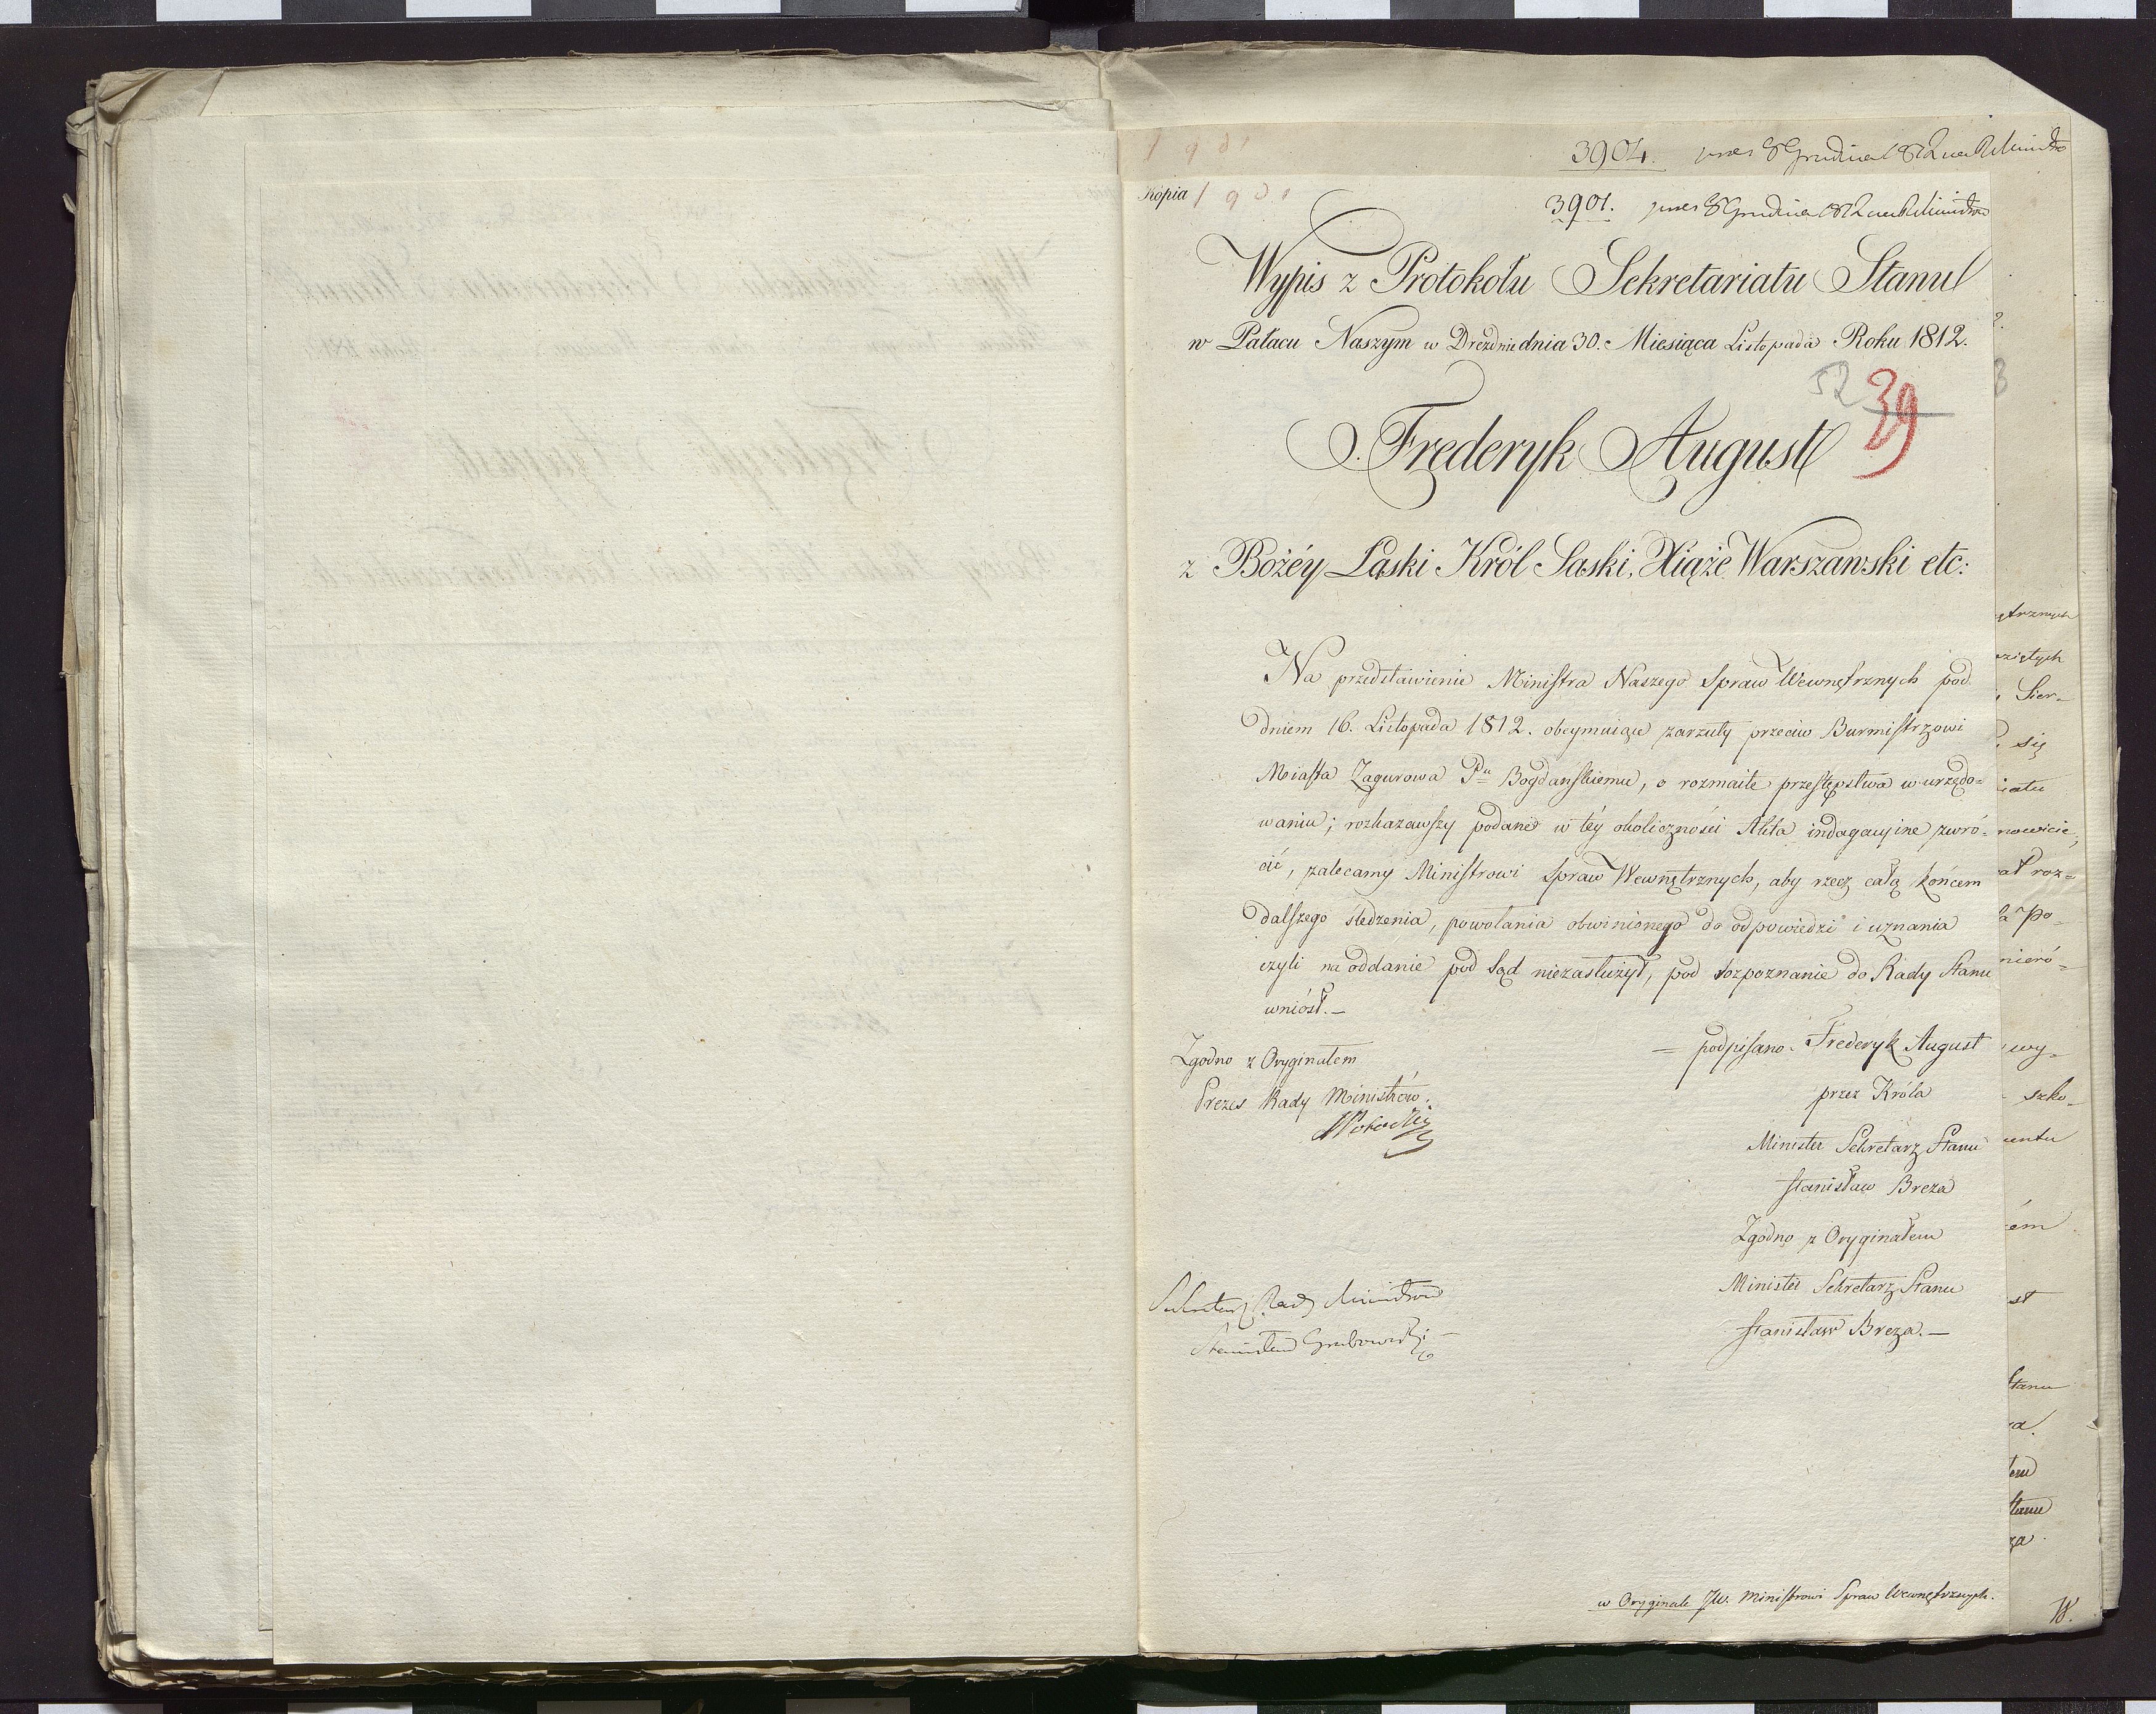 3904. pras 8 Grudnia 1812 na R Ministrów
Kópia
3901. pras 8 Grudnia 1812 na R Ministrów
Wypis z Protokołu Sekretariatu Stanu
w Pałacu Naszym w Dreźdnie dnia 30. Miesiąca Listopada Roku 1812.
52 39
Fręderyk August
z Bożéy Łaski Król Saski, Xiąże Warszawski etc:
Na przedstawienie Ministra Naszego Spraw Wewnętrznych pod
dniem 16. Listopada 1812. obeymuiące zarzuty przeciw Burmistrzowi
Miasta Zagurowa Pu Bogdanskiemu, o rozmaite przestępstwa w urzędo=
waniu; rozkazawszy podane w téy okoliczności Akta indagacyine zwró=
cić, zalecamy Ministrowi Spraw Wewnętrznych, aby rzecz całą końcem
dalszego śledzenia, powołania obwinionego do odpowiedzi i uznania
czyli na oddanie pod Sąd niezasłużył, pod rozpoznanie do Rady Stanu
wniósł.—
= podpisano. Frederyk August
Zgodno z Oryginałem
przez Króla
Prezes Rady Ministrów.
Minister Sekretarz Stanu
Stanisław Breza
Zgodno z Oryginałem
Minister Sekretarz Stanu
Sekretarz Rady Ministrów
Stanisław Breza.—
Stanisław Grabowski
w Oryginale JW. Ministrowi Spraw Wewnętrznych.
W.